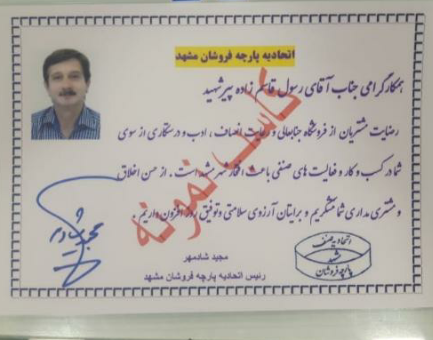 اتحادیه پارچه فروشان مشهد
همکار گرامی جناب آقای رسول قاسم زاده پیرشهید
رضایت مشتریان از فروشگاه جنابعالی و رعایت انصاف، ادب و درستکاری از سوی
شما در کسب و کار و فعالیت های صنفی باعث افتخار شهر مشهد است. از حسن اخلاق
و مشتری مداری شما متشکریم و برایتان آرزوی سلامتی و توفیق روز افزون داریم.
کاسب نمونه
مجید شادمهر
رئیس اتحادیه پارچه فروشان مشهد
اتحادیه صنف
مشهد
پارچه فروشان